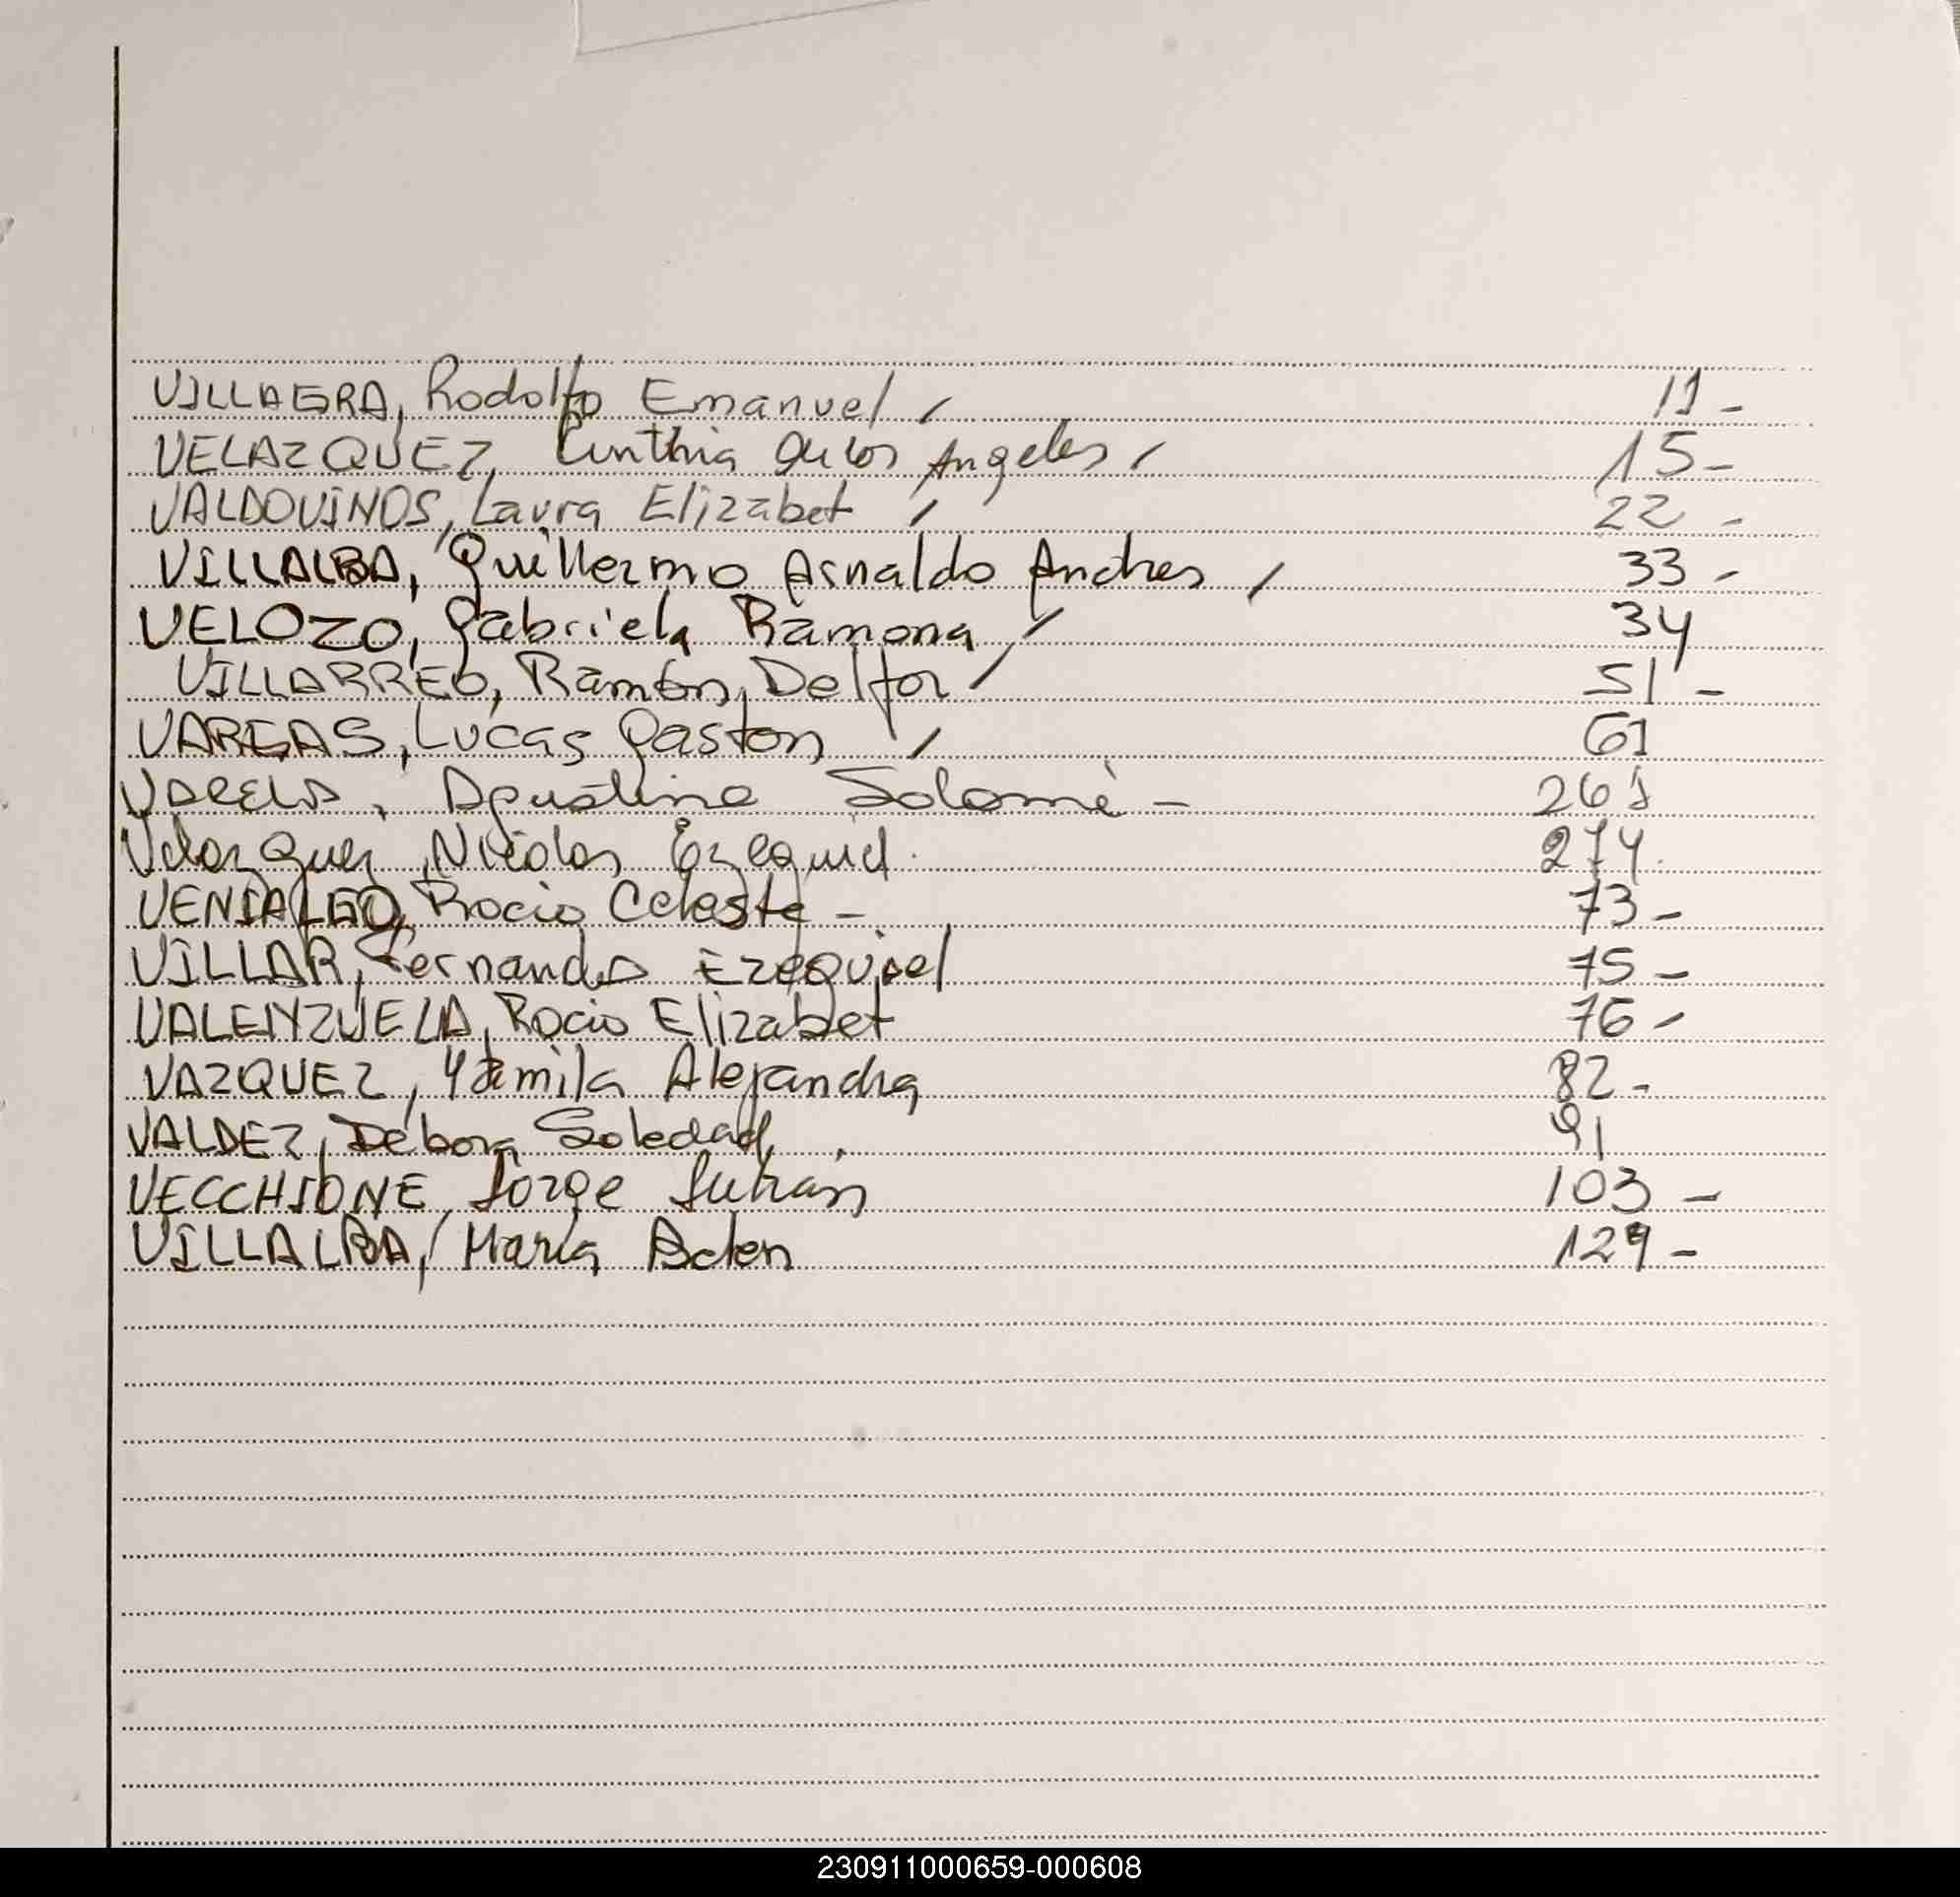 VILLAGRA, Rodolfo Emanuel / 11 -
VELAZQUEZ, Cinthia de los Angeles / 15 -
VALDOVINOS, Laura Elizabet / 22 -
VILLALBA, Guillermo Arnaldo Andres / 33 -
VELOZO, Gabriela Ramona / 34
VILLARREO, Ramón Delfor / 51 -
VARGAS, Lucas Gaston / 61
VARELA, Agustina Solomé - 261
Velazquez, Nicolas Ezequiel. 274.
VENIALGO, Rocio Celeste - 73 -
VILLAR, Fernando Ezequiel 75 -
VALENZUELA, Rocio Elizabet 76 -
VAZQUEZ, Yamila Alejandra 82 -
VALDEZ, Débora Soledad. 91
VECCHIONE, Jorge Julian 103 -
VILLALBA, Maria Belen 129 -
230911000659-000608